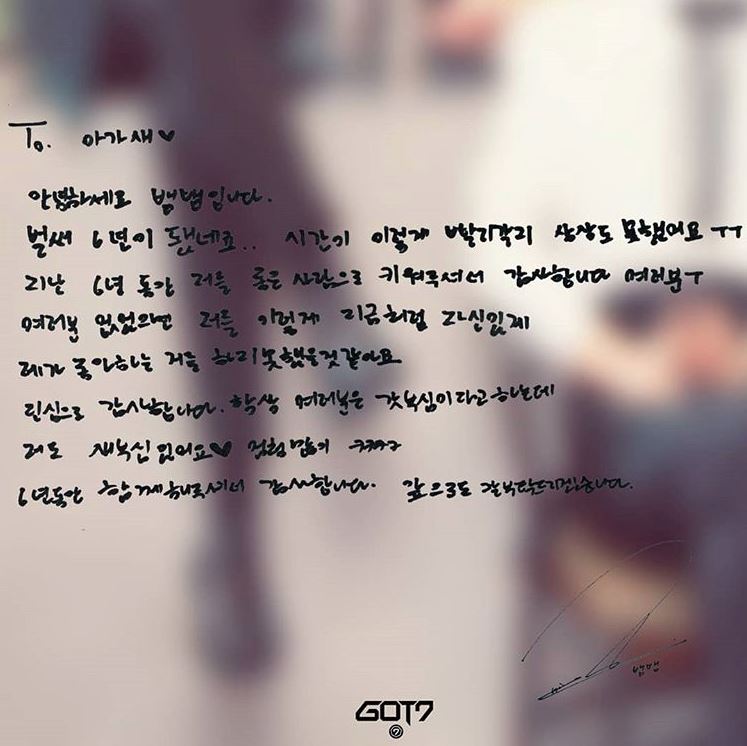 To. 아가새♥
안녕하세요 뱀뱀입니다.
벌써 6년이 됐네요.. 시간이 이렇게 빨리갈리 상상도 못했어요 ㅜㅜ
지난 6년 동안 저를 좋은 사람으로 키워주셔서 감사합니다 여러분ㅜ
여러분 없었으면 저를 이렇게 지금처럼 자신있게
제가 좋아하는 거를 하지못했을것같아요
진심으로 감사합니다. 항상 여러분은 갓부심이라고하는데
저도 새부심 있어요♥ ㅋㅋㅋㅋ
6년동안 함께해주셔서 감사합니다. 앞으로도 잘부탁드리겠습니다.
뱀뱀
GOT7